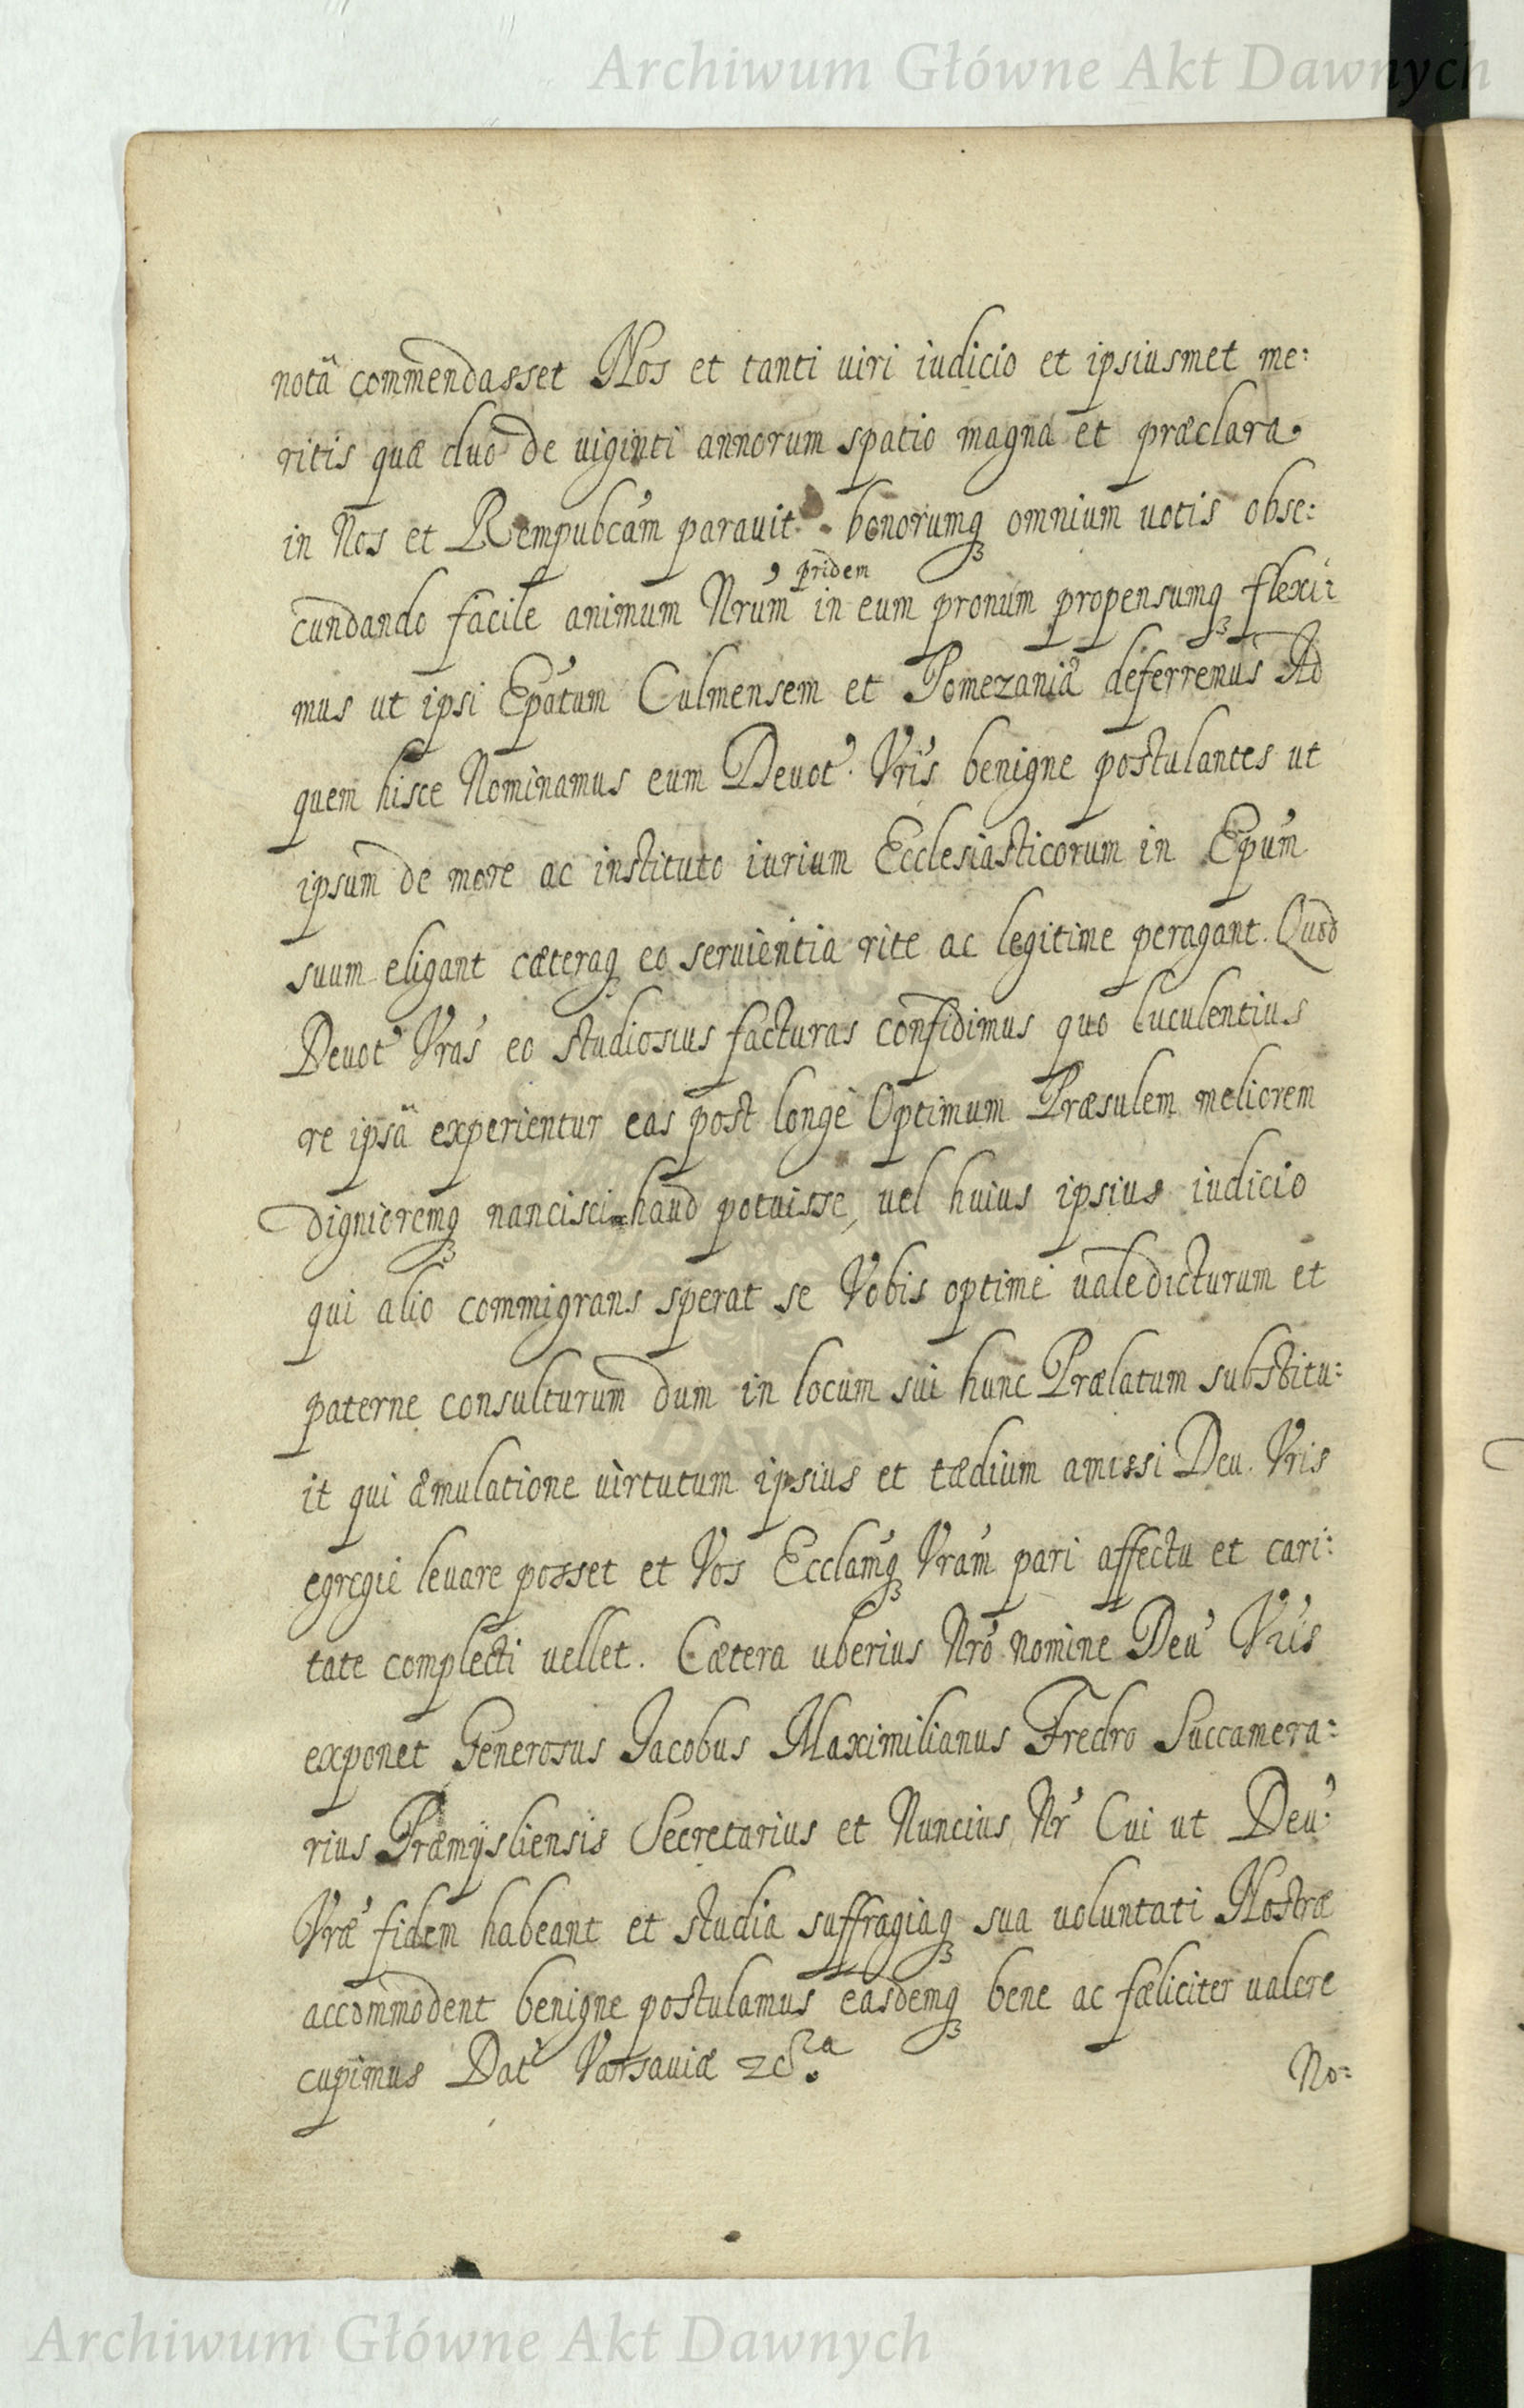 Archiwum Główne Akt Dawnych
notâ commendasset Nos et tanti uiri iudicio et ipsiusmet me:
ritis quæ duo de uiginti annorum spatio magna et præclara
in Nos et Rempubcam̃ parauit bonorumq; omnium uotis obse:
pridem
cundando facile animum Nrum̃ in eum pronum propensumq; flexi:
mus ut ipsi Epatum̃ Culmensem et Pomezaniæ deferremus Ad
quem hisce Nominamus eum Deuot. Vris̃ benigne postulantes ut
ipsum de more ac instituto iurium Ecclesiasticorum in Epum̃
suum eligant cæteraq; eo seruientia rite ac legitime peragant. Quod
Deuot Vras̃ eo studiosius facturas confidimus quo luculentius
re ipsâ experientur eas post longè Optimum Præsulem meliorem
dignioremq; nancisci haud potuisse, uel huius ipsius iudicio
qui alio commigrans sperat se Vobis optimè ualedicturum et
paterne consulturum dum in locum sui hunc Prælatum substitu:
it qui æmulatione uirtutum ipsius et tædium amissi Deu. Vris
egregiè leuare posset et Vos Ecclam̃q; Vram̃ pari affectu et cari:
tate complecti uellet. Cætera uberius Nrõ nomine Deu Vris̃
exponet Generosus Jacobus Maximilianus Fredro Succamera:
rius Præmÿsliensis Secretarius et Nuncius Nr̃ Cui ut Deu:
Vræ̃ fidem habeant et studia suffragiaq; sua uoluntati Nostræ
accommodent benigne postulamus easdemq; bene ac fæliciter ualere
cupimus Dat Varsauiæ &c.ª
No=
Archiwum Główne Akt Dawnych